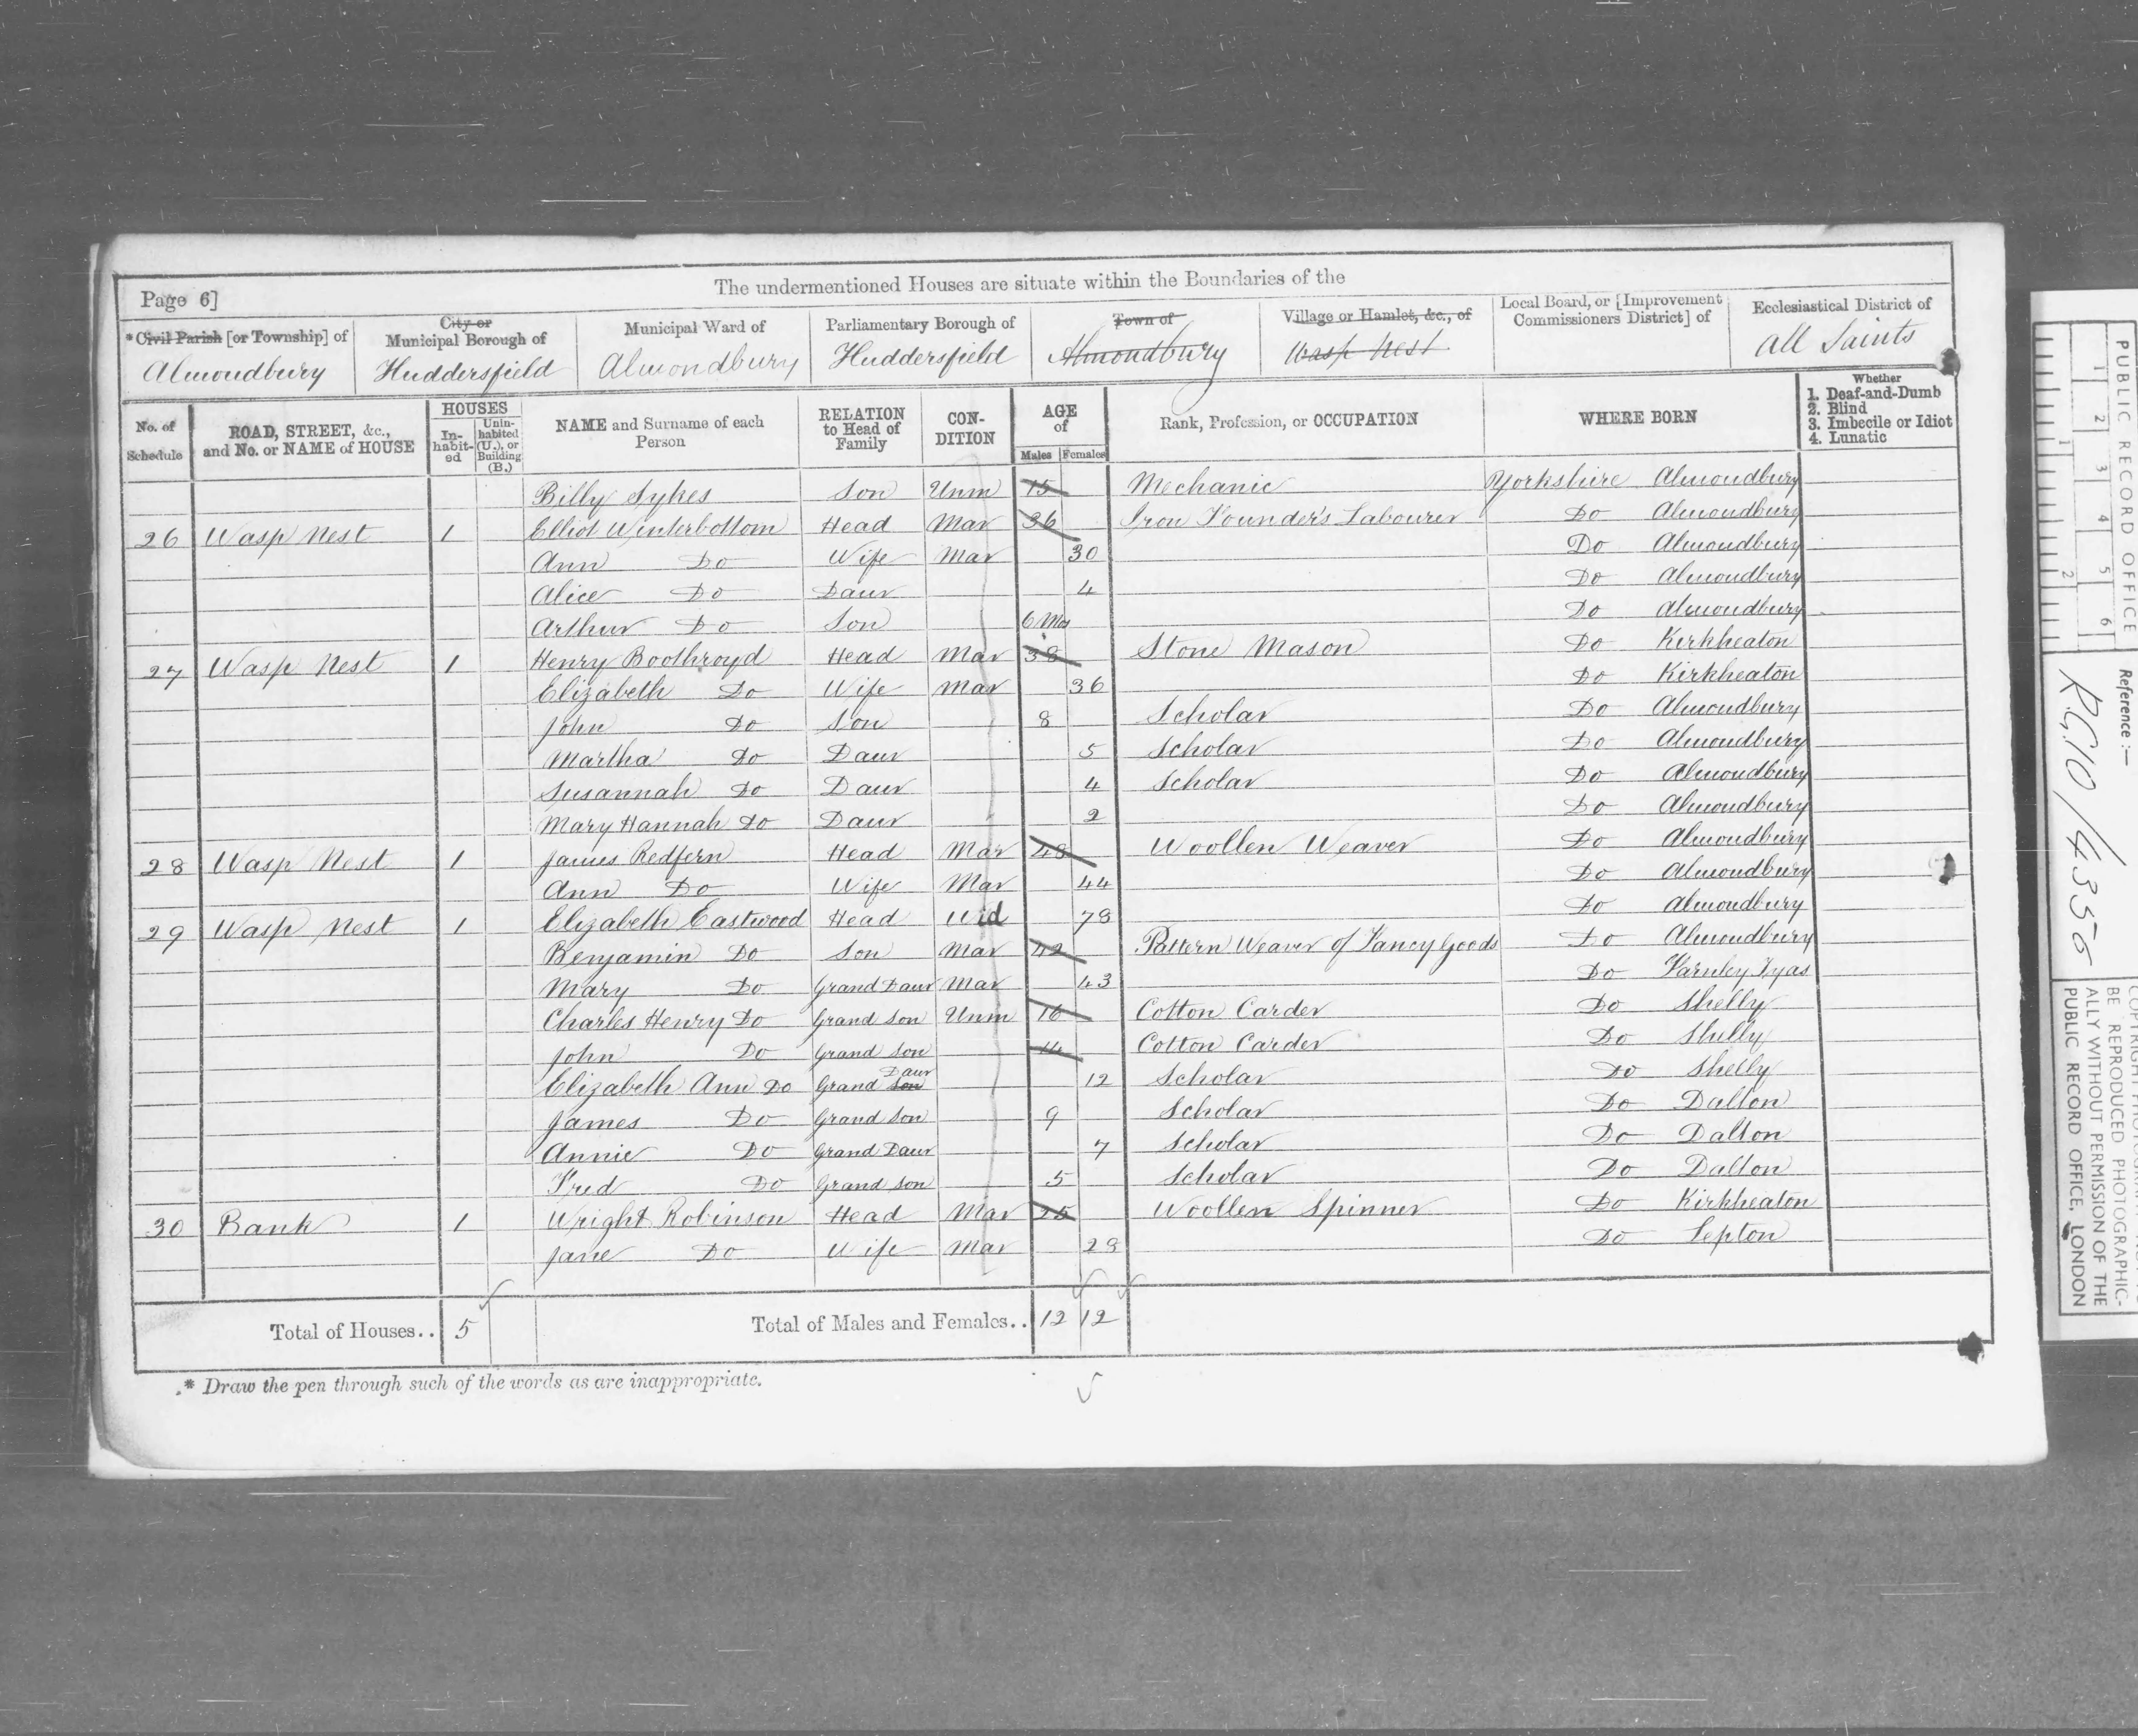 The undermentioned Houses are situate within the Boundaries of the
Page 6]
* Civil Parish [or Township] of
Almondbury
City or Municipal Borough of
Huddersfield
Municipal Ward of
Almondbury
Parliamentary Borough of
Huddersfield
Town of
Almondbury
Village or Hamlet, &c., of
Wasp Nest
Local Board, or [Improvement Commissioners District] of
Ecclesiastical District of
All Saints
No. of Schedule
ROAD, STREET, &c., and No. or NAME of HOUSE
HOUSES
In-habit-ed
Unin-habited (U.), or Building (B.)
NAME and Surname of each Person
RELATION to Head of Family
CON-DITION
AGE of
Males
Females
Rank, Profession, or OCCUPATION
WHERE BORN
Whether
1. Deaf-and-Dumb
2. Blind
3. Imbecile or Idiot
4. Lunatic
Billy Sykes Son Unm 15 Mechanic Yorkshire Almondbury
26 Wasp Nest 1 Elliot Winterbottom Head Mar 36 Iron Founder's Labourer Do Almondbury
Ann Do Wife Mar 30 Do Almondbury
Alice Do Daur 4 Do Almondbury
Arthur Do Son 6 Mos Do Almondbury
27 Wasp Nest 1 Henry Boothroyd Head Mar 38 Stone Mason Do Kirkheaton
Elizabeth Do Wife Mar 36 Do Kirkheaton
John Do Son 8 Scholar Do Almondbury
Martha Do Daur 5 Scholar Do Almondbury
Susannah Do Daur 4 Scholar Do Almondbury
Mary Hannah Do Daur 2 Do Almondbury
28 Wasp Nest 1 James Redfern Head Mar 48 Woollen Weaver Do Almondbury
Ann Do Wife Mar 44 Do Almondbury
29 Wasp Nest 1 Elizabeth Eastwood Head Wid 78 Do Almondbury
Benjamin Do Son Mar 42 Pattern Weaver of Fancy Goods Do Almondbury
Mary Do Grand Daur Mar 43 Do Farnley Tyas
Charles Henry Do Grand Son Unm 16 Cotton Carder Do Shelly
John Do Grand Son 14 Cotton Carder Do Shelly
Elizabeth Ann Do Grand Son Daur 12 Scholar Do Shelly
James Do Grand Son 9 Scholar Do Dalton
Annie Do Grand Daur 7 Scholar Do Dalton
Fred Do Grand Son 5 Scholar Do Dalton
30 Bank 1 Wright Robinson Head Mar 25 Woollen Spinner Do Kirkheaton
Jane Do Wife Mar 28 Do Lepton
Total of Houses.. 5 Total of Males and Females.. 12 12
* Draw the pen through such of the words as are inappropriate.
PUBLIC RECORD OFFICE
1 2 3 4 5 6
1 2
Reference :—
R.G.10/4356
BE REPRODUCED PHOTOGRAPHIC-
ALLY WITHOUT PERMISSION OF THE
PUBLIC RECORD OFFICE, LONDON